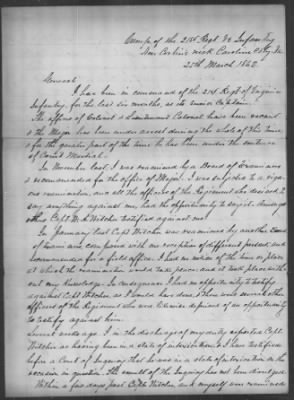 Camp of the 21st Regt Va Infantry
Near Corbin's neck Caroline County Va.
25th March 1862.
General
I have been in command of the 21st Regt of Virginia
Infantry, for the last six months, as its senior Captain.
The offices of Colonel & Lieutenant Colonel have been vacant
& the Major has been under arrest during the whole of this time
& for the greater part of the time he has been under the sentence
of Court Martial.
In November last I was examined by a Board of Examiners
& recommended for the office of Major. I was subjected to a rigo-
rous examination, and all the officers of the Regiment who desired to
say anything against me, had the opportunity to say it. Among
others Capt. Wm A Witcher testified against me.
In January last Capt Witcher was examined by another Board
of Examiners composed with one exception of different persons, and
recommended for a field office. I had no notice of the time or place
at which the examination would take place, and it took place with-
out my knowledge. In consequence I had no opportunity to testify
against Capt Witcher, as I would have done, & there were several other
officers of the Regiment who were likewise deprived of an opportunity
to testify against him.
weeks ago, I in the discharge of my duty reported Capt.
Witcher as having been in a state of intoxication & I have testified
before a Court of Inquiry that he was in a state of intoxication on the
occasion in question. The result of the Inquiry has not been divulged.
Within a few days past Capt Witcher and myself were examined